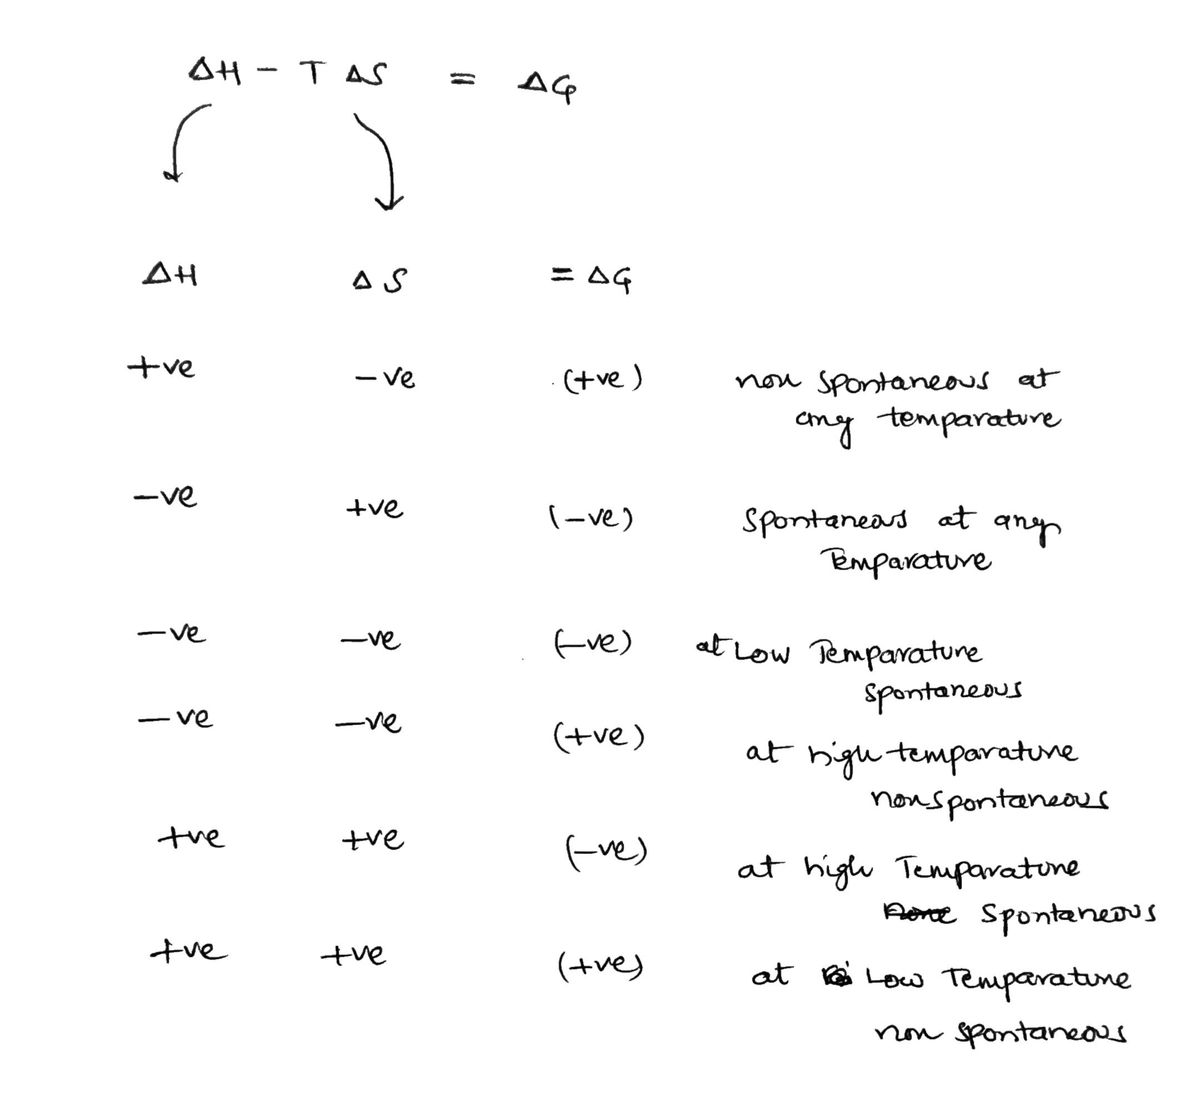 ΔH - T ΔS = ΔG
ΔH ΔS = ΔG
+ve -ve (+ve) non spontaneous at
any temparature
-ve +ve (-ve) spontaneous at any
Temparature
-ve -ve (-ve) at Low Temparature
spontaneous
-ve -ve (+ve) at high temparature
nonspontaneous
+ve +ve (-ve) at high Temparature
Spontaneous
+ve +ve (+ve) at Low Temparature
non spontaneous